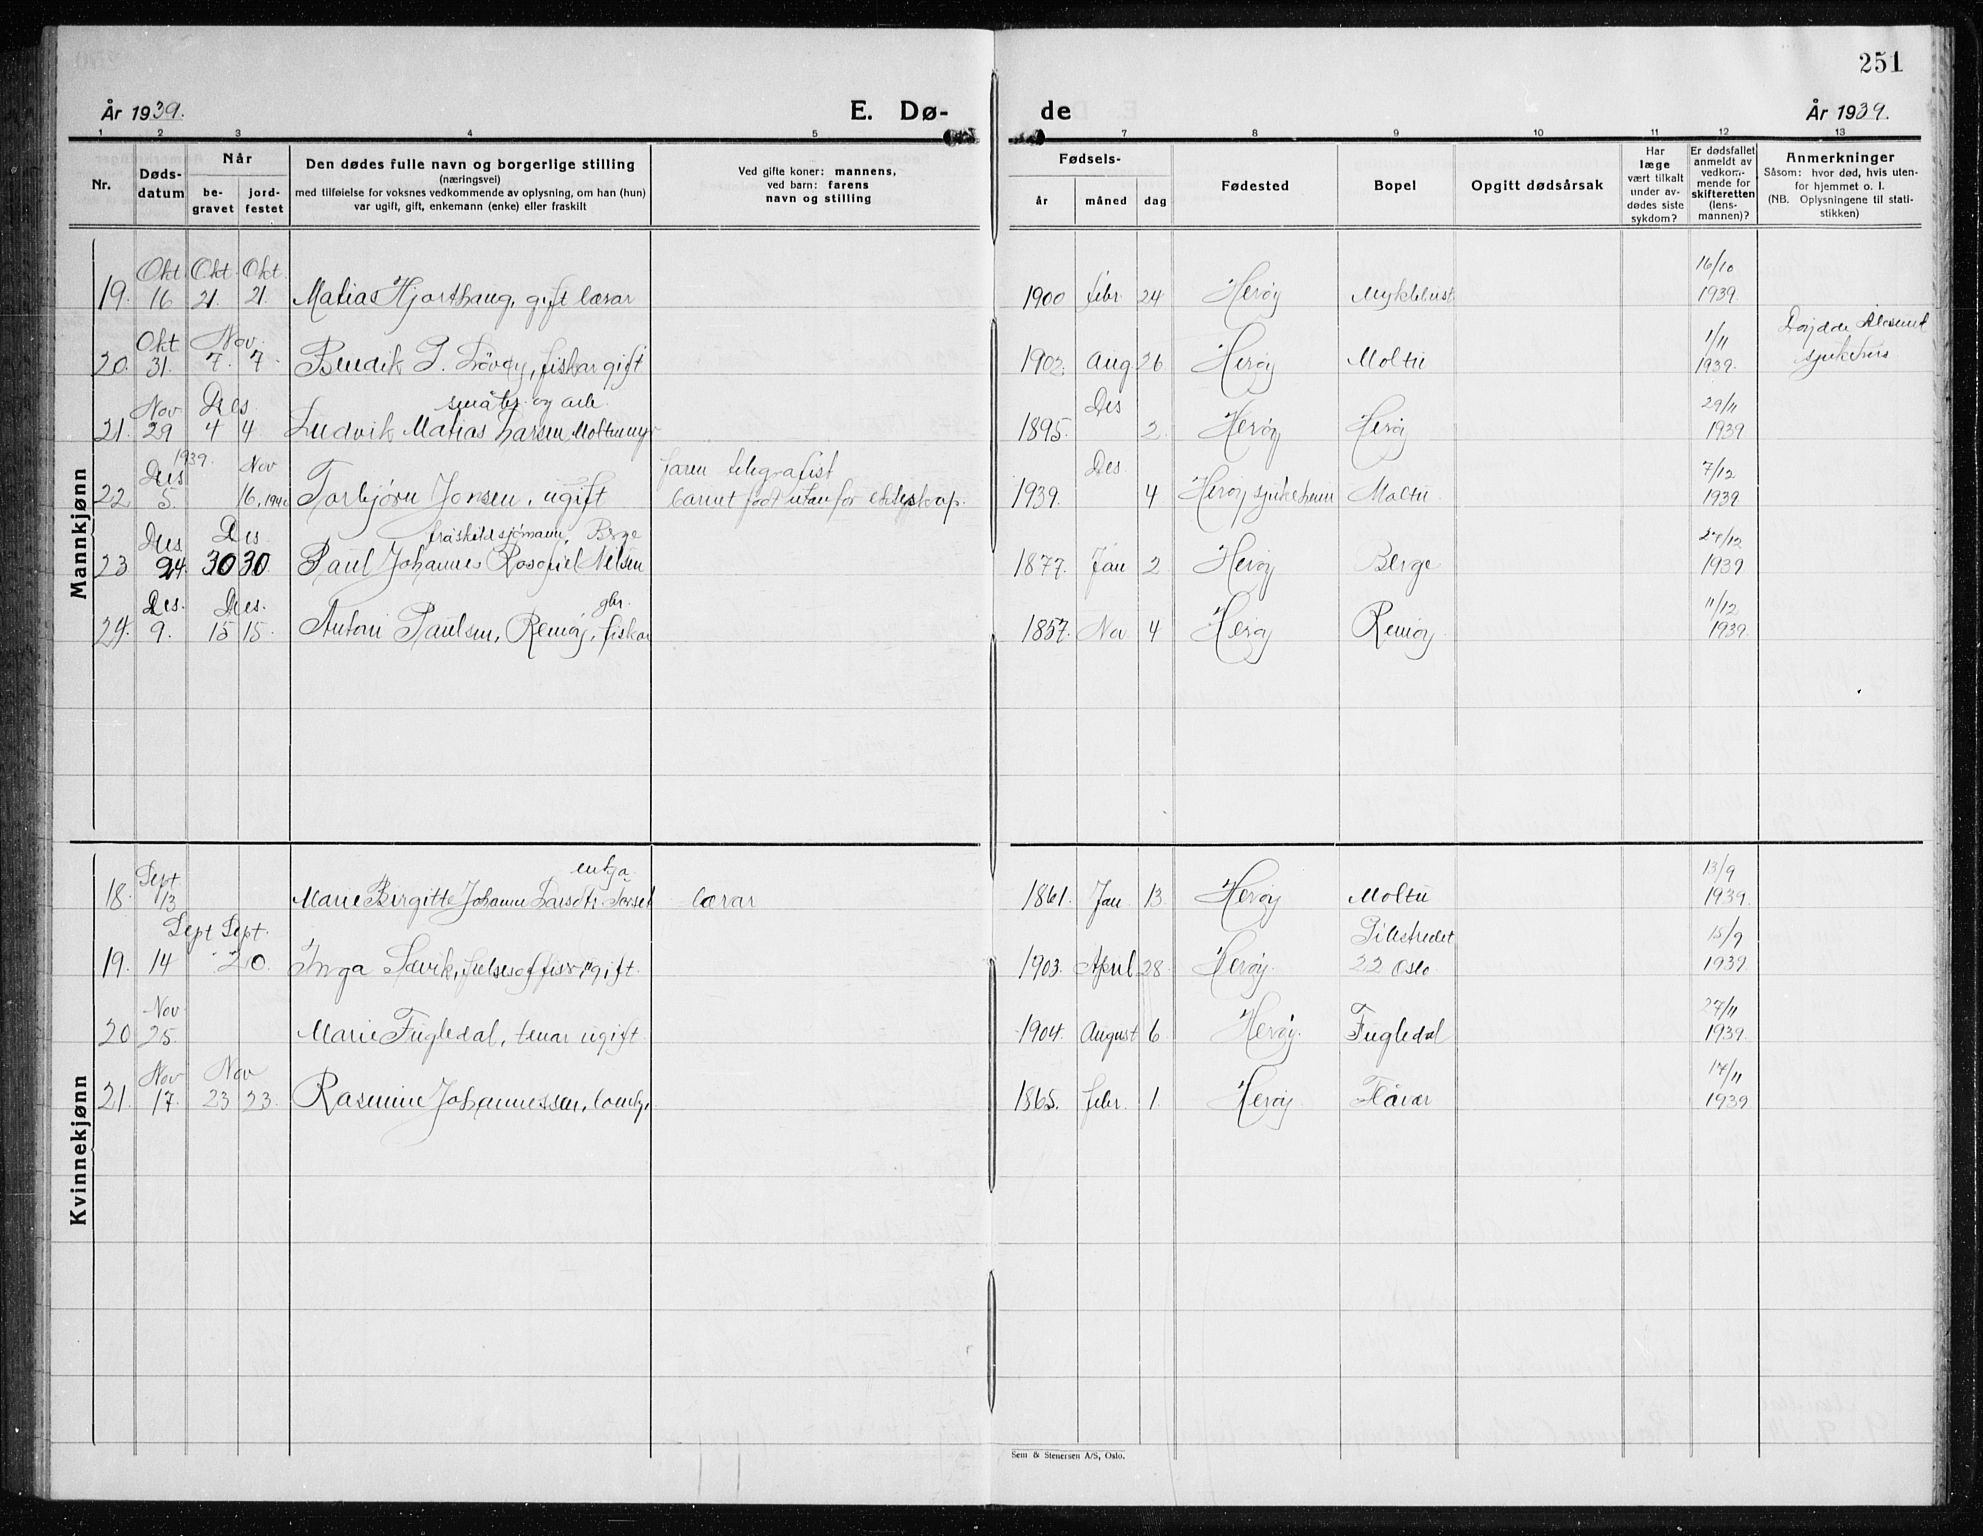 251
År 1939.
E. Dø-
de
År 1939.
1 2 3 4 5 7 8 9 10 11 12 13
Nr.
Døds-
datum
Når
be-
gravet
jord-
festet
Den dødes fulle navn og borgerlige stilling
(næringsvei)
med tilføielse for voksnes vedkommende av oplysning, om han (hun)
var ugift, gift, enkemann (enke) eller fraskilt
Ved gifte koner: mannens,
ved barn: farens
navn og stilling
Fødsels-
år måned dag
Fødested
Bopel
Opgitt dødsårsak
Har
læge
vært tilkalt
under av-
dødes siste
sykdom?
Er dødsfallet
anmeldt av
vedkom-
mende for
skifteretten
(lens-
mannen)?
Anmerkninger
Såsom: hvor død, hvis uten-
for hjemmet o. l.
(NB. Oplysningene til stati-
stikken)
Mannkjønn
Okt Okt. Okt. 16/10
19. 16 21. 21. Matias Hjorthaug, gift lærar 1900 febr. 24 Herøy Myklebust 1939.
Okt Nov. 1/11 Døydde Ålesund
20. 31. 7. 7. Bendik P. , fiskar gift 1902. Aug. 26 Herøy Moltu 1939. sjukehus
Nov Des. småbr. og arb. Des 29/11
21. 29 4 4. Ludvik Matias Larsen Moltumyr 1895. 2. Herøy Herøy 1939
Des 1939. Nov faren telegrafist Des 7/12
22 5. 16. 1940 Torbjørn Jonsen, ugift barnet født utanfor ekteskap. 1939. 4 Herøy sjukeheim Moltu. 1939
Des Des. fråskild sjømann, Berge 27/12
23 24. 30 30. Paul Johannes Nilsen 1877. Jan 2 Herøy Berge 1939
Des. Des. gbr. 11/12
24. 9. 15 15. Antoni Paulsen, Remøy, fiskar 1857. Nov 4 Herøy Remøy 1939.
Kvinnekjønn
Sept. enkja 13/9
18. 13 Marie Birgitte Johanne Larsdtr. lærar 1861. Jan 13. Herøy Moltu 1939.
Sept Sept. Pilestredet 15/9
19. 14 20. Inga Sævik, ugift. 1903. April 28 Herøy. 22 Oslo 1939.
Nov 27/11
20 25. Marie Fugledal, tenar ugift. 1904. August 6 Herøy. Fugledal 1939.
Nov Nov 17/11
21. 17. 23 23. Rasmine Johannessen, 1865. febr. 1. Herøy. Flåvær 1939
Sem & Stenersen A/S, Oslo.